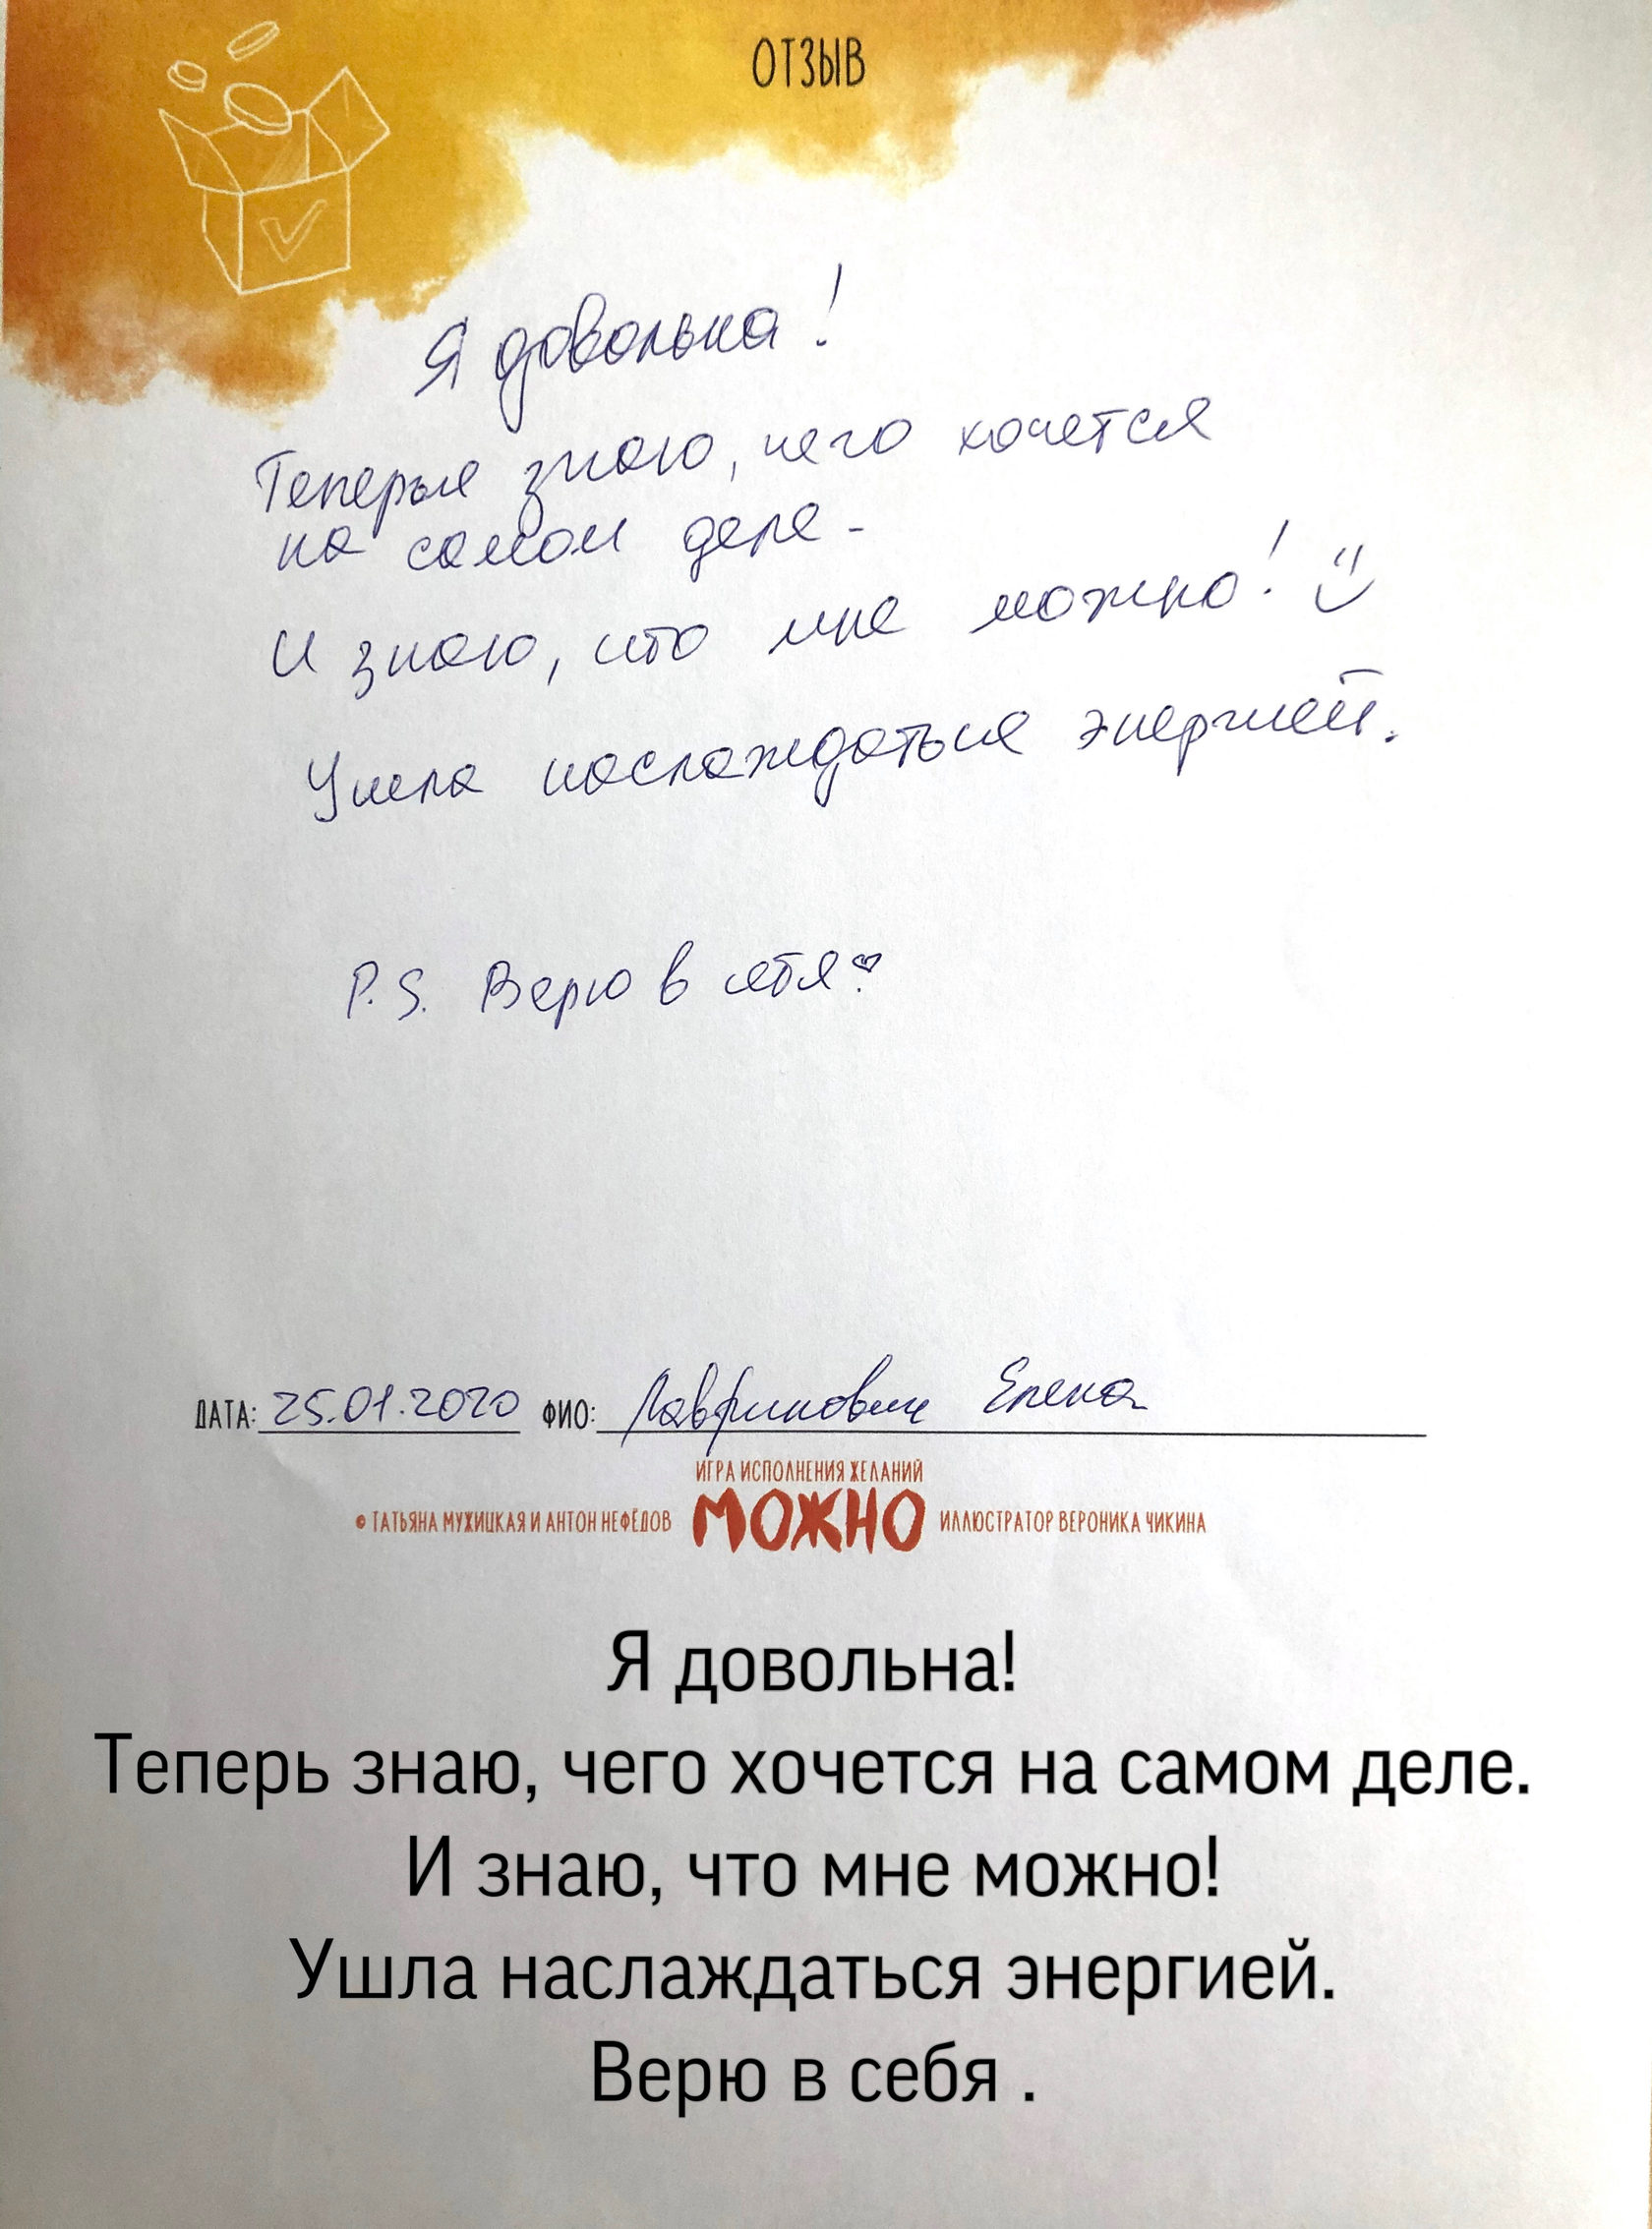 ОТЗЫВ
Я довольна!
Теперь знаю, чего хочется
на самом деле -
И знаю, что мне можно!
Ушла наслаждаться энергией.
P.S. Верю в себя
ДАТА: 25.01.2020 ФИО: Лавринович Елена
ИГРА ИСПОЛНЕНИЯ ЖЕЛАНИЙ
© ТАТЬЯНА МУЖИЦКАЯ И АНТОН НЕФЁДОВ МОЖНО ИЛЛЮСТРАТОР ВЕРОНИКА ЧИКИНА
Я довольна!
Теперь знаю, чего хочется на самом деле.
И знаю, что мне можно!
Ушла наслаждаться энергией.
Верю в себя .